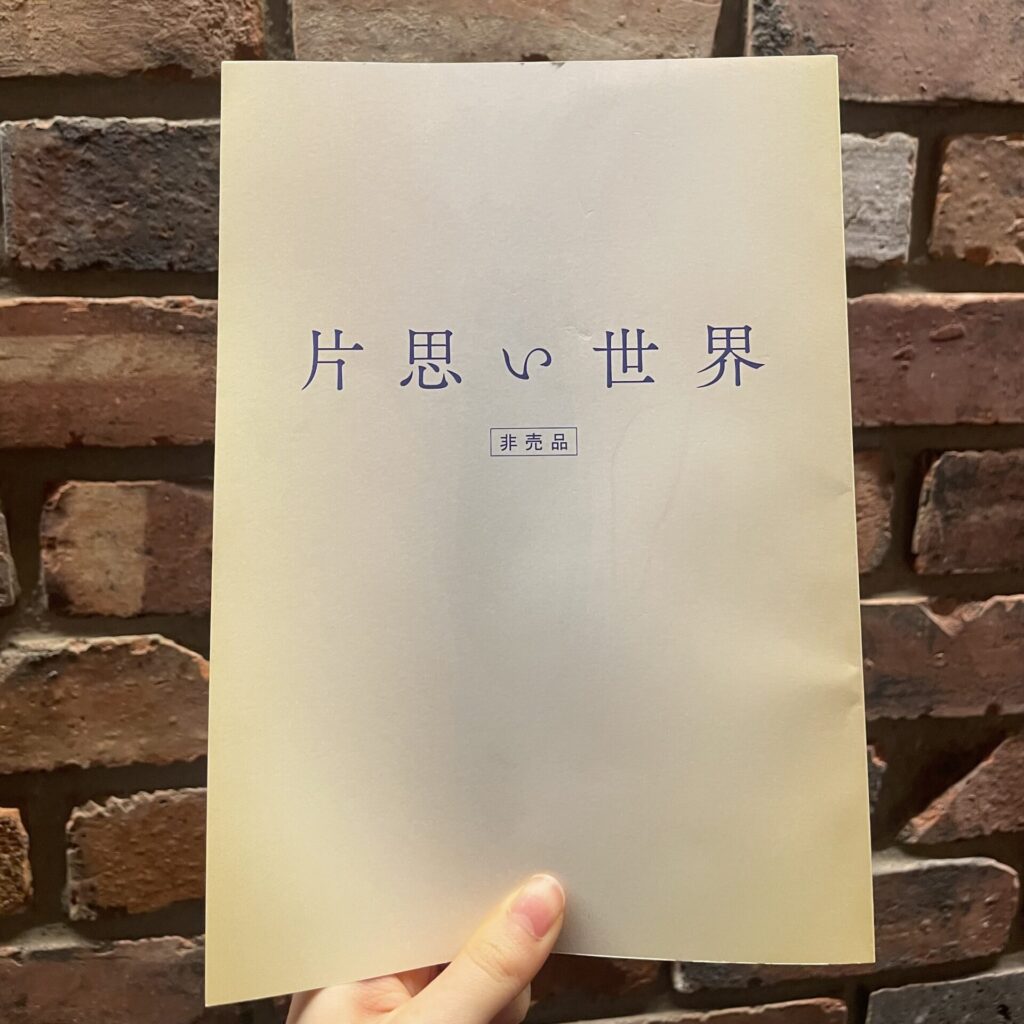 片思い世界
非売品